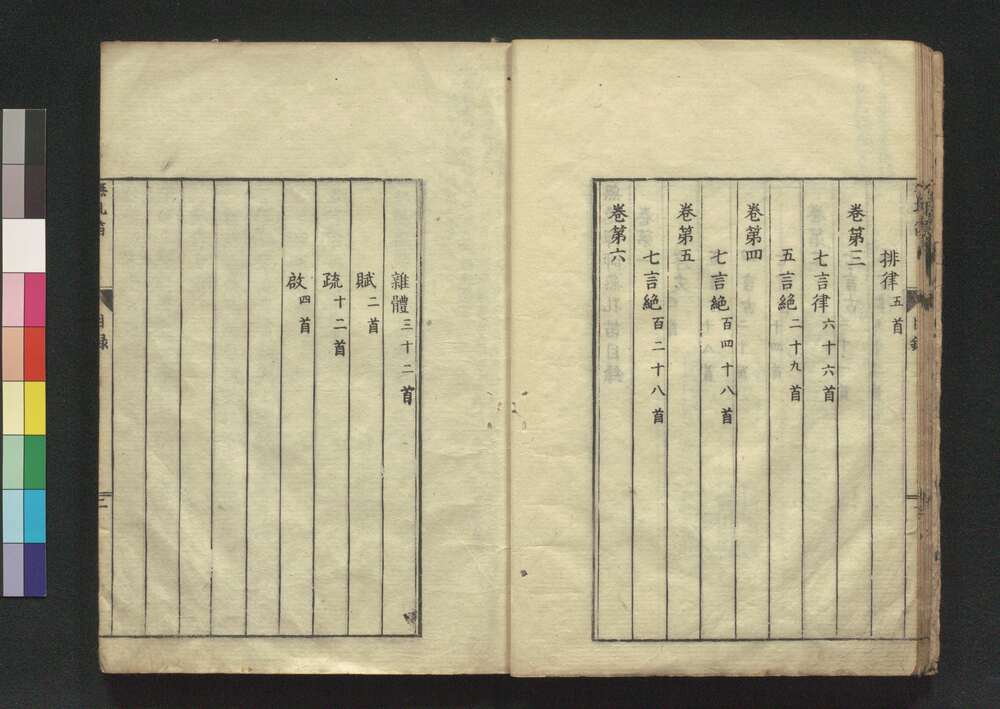 排律 五首
卷第三
七言律 六十六首
五言絶 二十九首
卷第四
七言絶 百四十八首
卷第五
七言絶 百二十八首
卷第六
目錄
雜體 三十二首
賦 二首
疏 十二首
啟 四首
無孔笛
目録
二